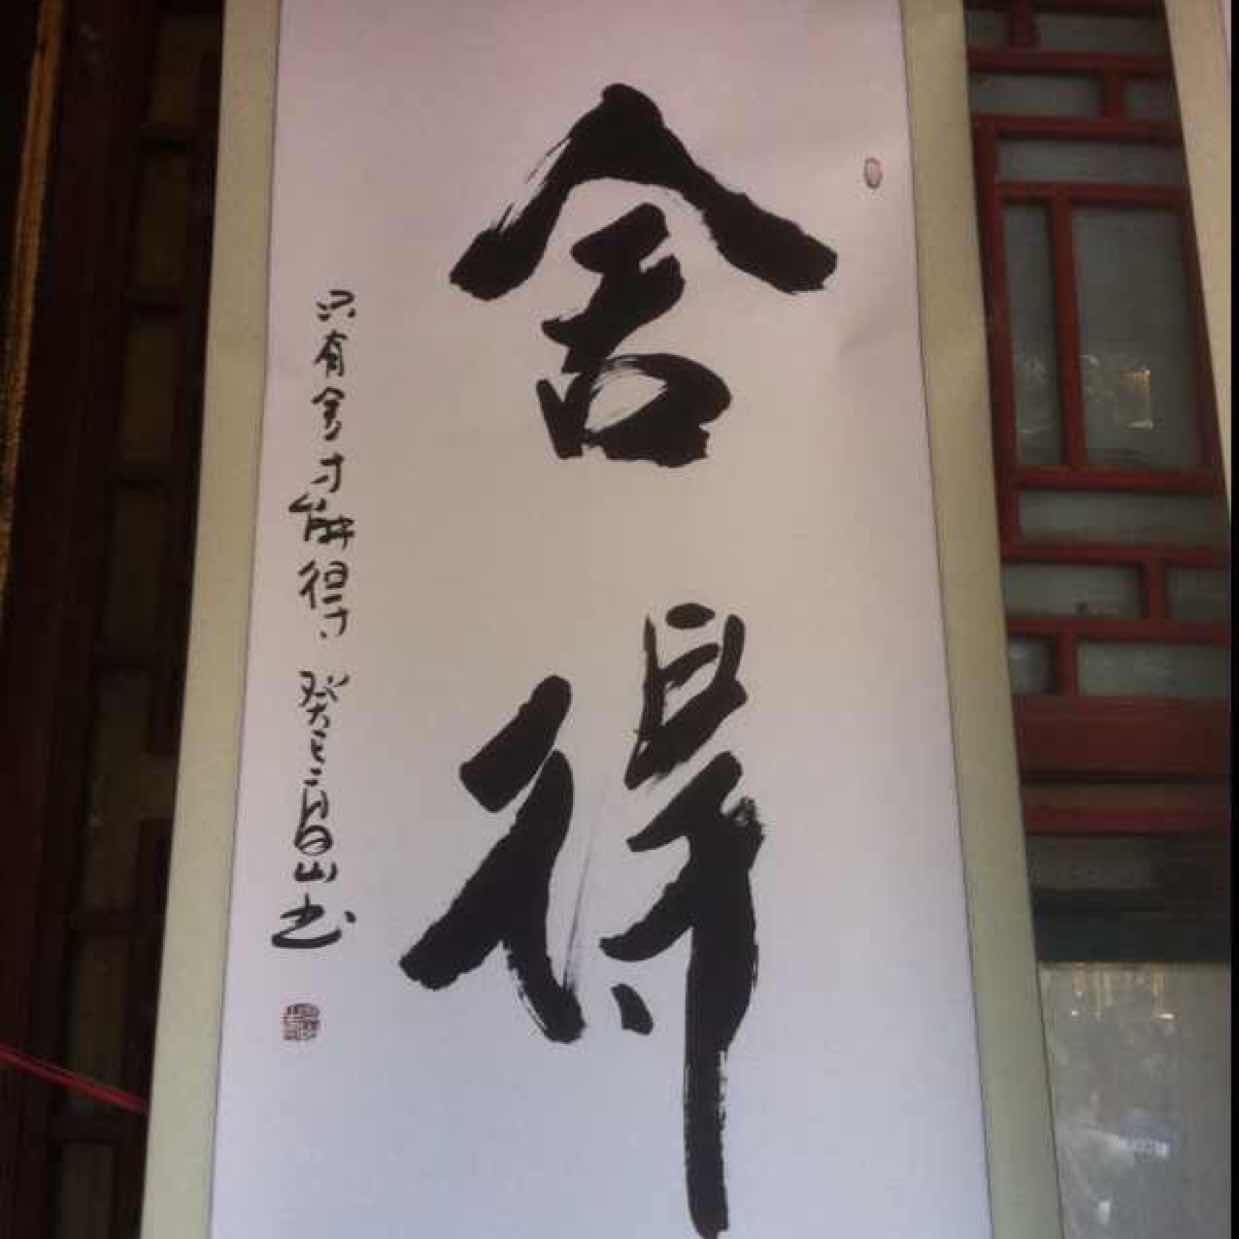 舍得
只有舍才能得 癸巳二月 山书